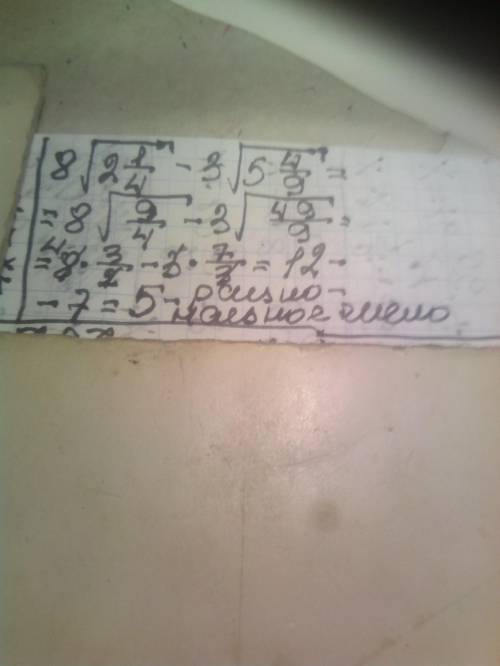 8√2 1/4 - 3√5 4/9 =
= 8√9/4 - 3√49/9 =
= 8 · 3/2 - 3 · 7/3 = 12 -
- 7 = 5 - рацио-
нальное число